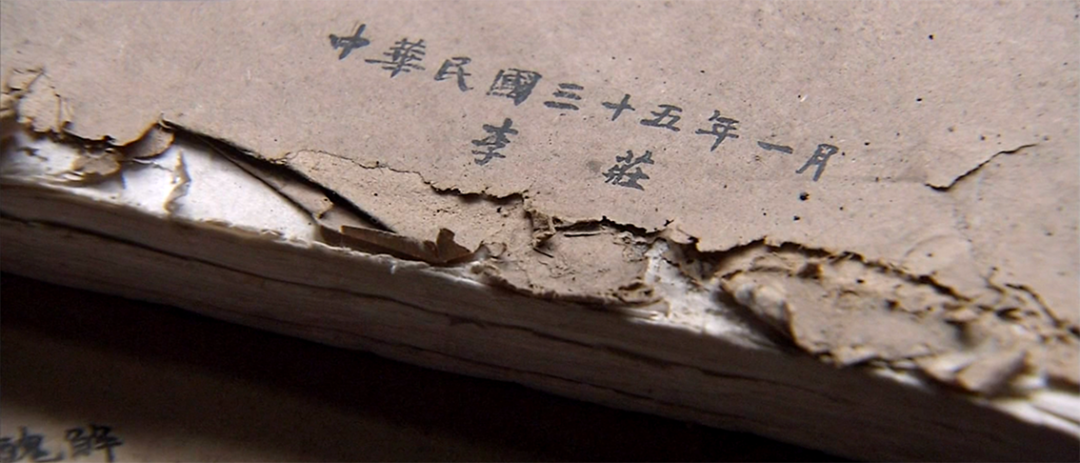 中華民國三十五年一月
李莊